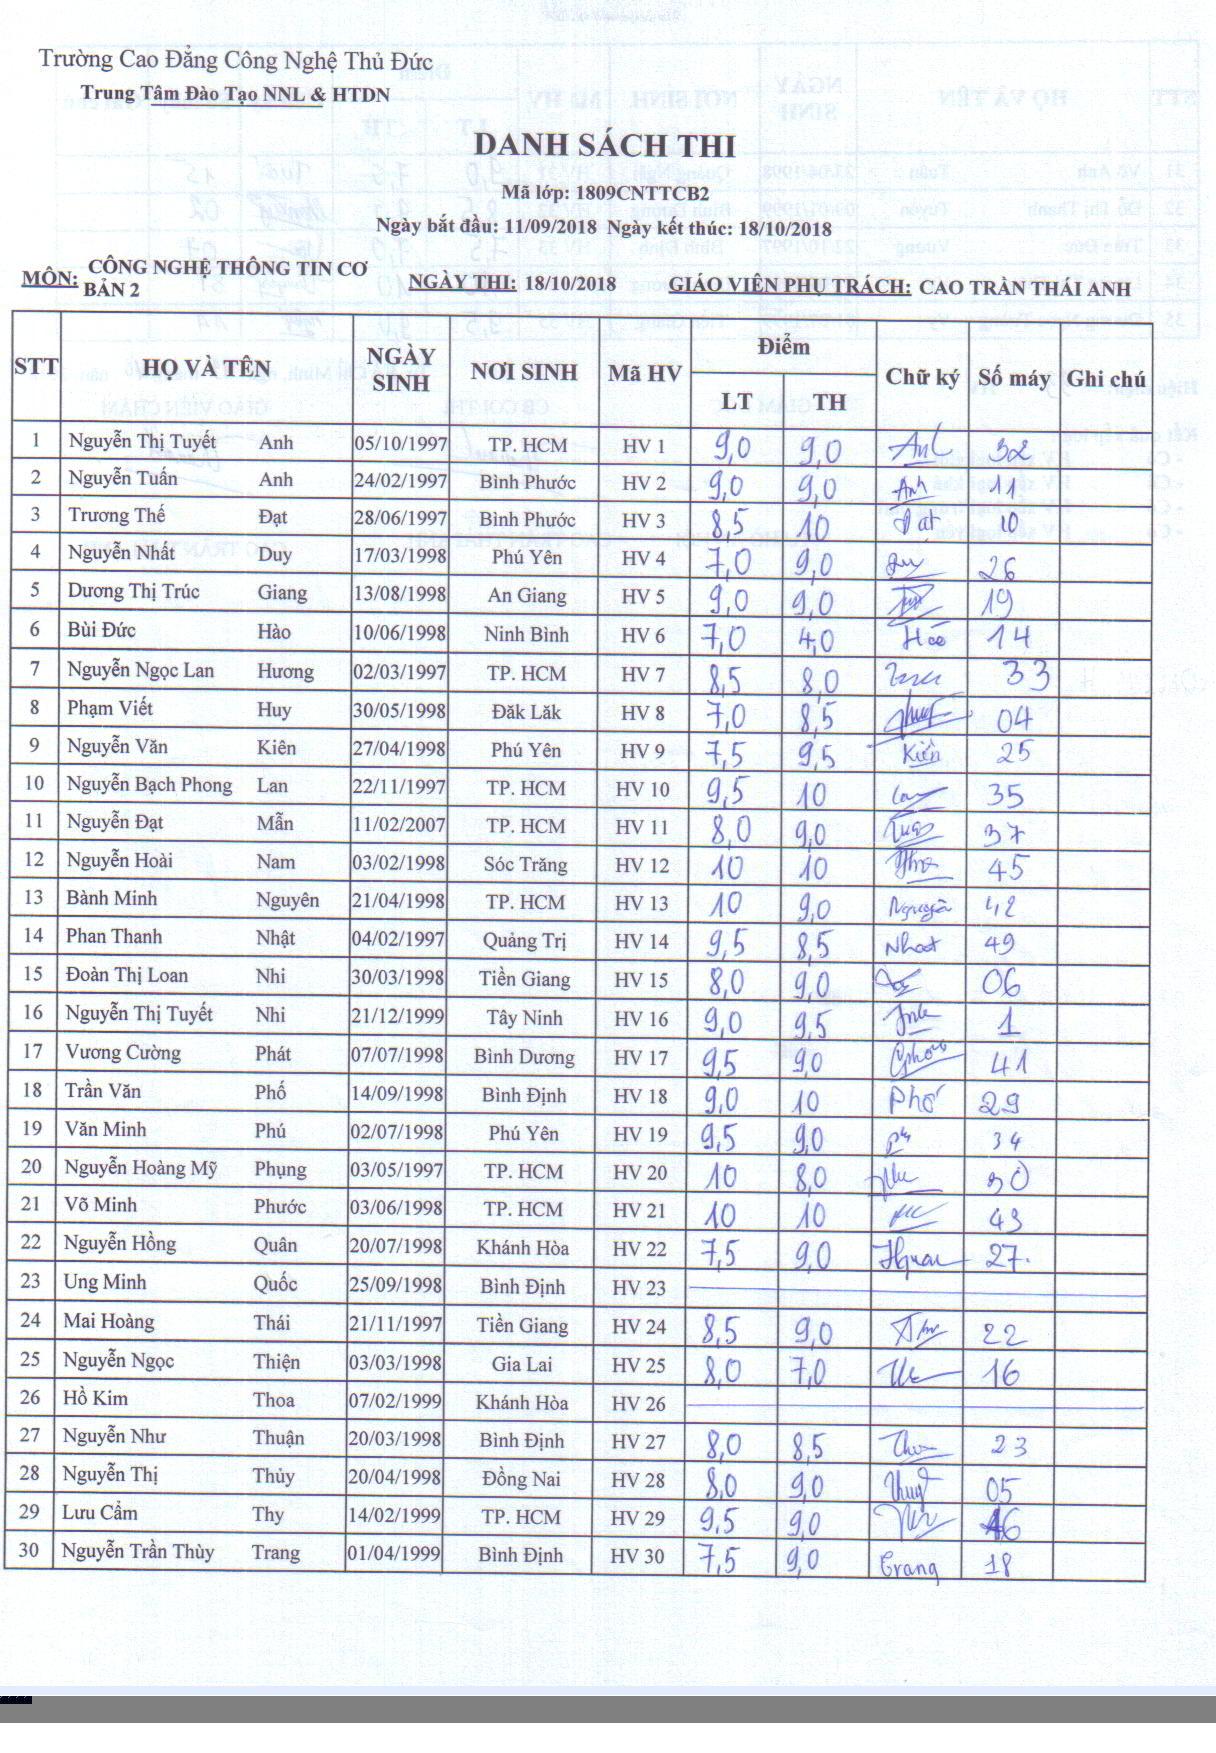 Trường Cao Đẳng Công Nghệ Thủ Đức
Trung Tâm Đào Tạo NNL & HTDN
DANH SÁCH THI
Mã lớp: 1809CNTTCB2
Ngày bắt đầu: 11/09/2018 Ngày kết thúc: 18/10/2018
MÔN: CÔNG NGHỆ THÔNG TIN CƠ BẢN 2 NGÀY THI: 18/10/2018 GIÁO VIÊN PHỤ TRÁCH: CAO TRẦN THÁI ANH
STT HỌ VÀ TÊN NGÀY SINH NƠI SINH Mã HV Điểm Chữ ký Số máy Ghi chú
LT TH
1 Nguyễn Thị Tuyết Anh 05/10/1997 TP. HCM HV 1 9,0 9,0 32
2 Nguyễn Tuấn Anh 24/02/1997 Bình Phước HV 2 9,0 9,0 Anh 11
3 Trương Thế Đạt 28/06/1997 Bình Phước HV 3 8,5 10 Đat 10
4 Nguyễn Nhất Duy 17/03/1998 Phú Yên HV 4 7,0 9,0 26
5 Dương Thị Trúc Giang 13/08/1998 An Giang HV 5 9,0 9,0 19
6 Bùi Đức Hào 10/06/1998 Ninh Bình HV 6 7,0 4,0 14
7 Nguyễn Ngọc Lan Hương 02/03/1997 TP. HCM HV 7 8,5 8,0 33
8 Phạm Viết Huy 30/05/1998 Đăk Lăk HV 8 7,0 8,5 04
9 Nguyễn Văn Kiên 27/04/1998 Phú Yên HV 9 7,5 9,5 Kiên 25
10 Nguyễn Bạch Phong Lan 22/11/1997 TP. HCM HV 10 9,5 10 35
11 Nguyễn Đạt Mẫn 11/02/2007 TP. HCM HV 11 8,0 9,0 37
12 Nguyễn Hoài Nam 03/02/1998 Sóc Trăng HV 12 10 10 45
13 Bành Minh Nguyên 21/04/1998 TP. HCM HV 13 10 9,0 Nguyên 42
14 Phan Thanh Nhật 04/02/1997 Quảng Trị HV 14 9,5 8,5 Nhat 49
15 Đoàn Thị Loan Nhi 30/03/1998 Tiền Giang HV 15 8,0 9,0 06
16 Nguyễn Thị Tuyết Nhi 21/12/1999 Tây Ninh HV 16 9,0 9,5 1
17 Vương Cường Phát 07/07/1998 Bình Dương HV 17 9,5 9,0 41
18 Trần Văn Phố 14/09/1998 Bình Định HV 18 9,0 10 Phố 29
19 Văn Minh Phú 02/07/1998 Phú Yên HV 19 9,5 9,0 34
20 Nguyễn Hoàng Mỹ Phụng 03/05/1997 TP. HCM HV 20 10 8,0 30
21 Võ Minh Phước 03/06/1998 TP. HCM HV 21 10 10 43
22 Nguyễn Hồng Quân 20/07/1998 Khánh Hòa HV 22 7,5 9,0 27.
23 Ung Minh Quốc 25/09/1998 Bình Định HV 23
24 Mai Hoàng Thái 21/11/1997 Tiền Giang HV 24 8,5 9,0 22
25 Nguyễn Ngọc Thiện 03/03/1998 Gia Lai HV 25 8,0 7,0 16
26 Hồ Kim Thoa 07/02/1999 Khánh Hòa HV 26
27 Nguyễn Như Thuận 20/03/1998 Bình Định HV 27 8,0 8,5 23
28 Nguyễn Thị Thủy 20/04/1998 Đồng Nai HV 28 8,0 9,0 05
29 Lưu Cẩm Thy 14/02/1999 TP. HCM HV 29 9,5 9,0
30 Nguyễn Trần Thùy Trang 01/04/1999 Bình Định HV 30 7,5 9,0 Trang 18